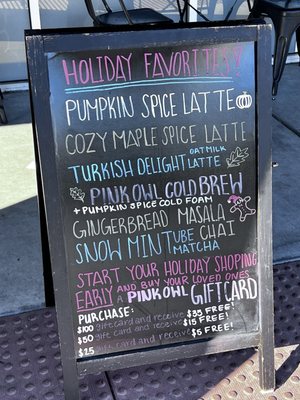 HOLIDAY FAVORITES!
PUMPKIN SPICE LATTE
COZY MAPLE SPICE LATTE
TURKISH DELIGHT OATMILK LATTE
PINK OWL COLD BREW
+ PUMPKIN SPICE COLD FOAM
GINGERBREAD MASALA CHAI
SNOW MINT UBE MATCHA
START YOUR HOLIDAY SHOPING
EARLY AND BUY YOUR LOVED ONES
A PINK OWL GIFT CARD
PURCHASE:
$100 giftcard and receive $35 FREE!
$50 gift card and receive $15 FREE!
$25 gift card and receive $5 FREE!